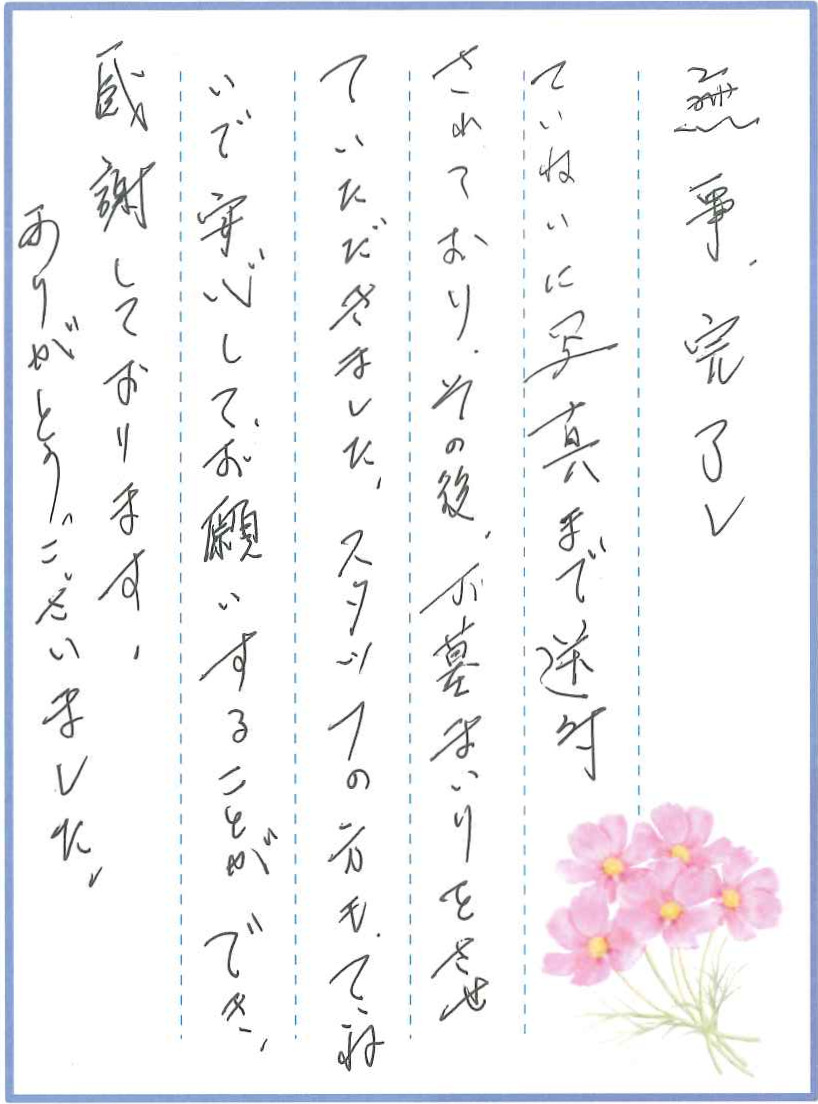 無事、完了し
ていねいに写真まで送付
されており、その後、お墓まいりをさせ
ていただきました、スタッフの方も、てね
いで安心して、お願いすることができ、
感謝しております、
ありがとうございました、